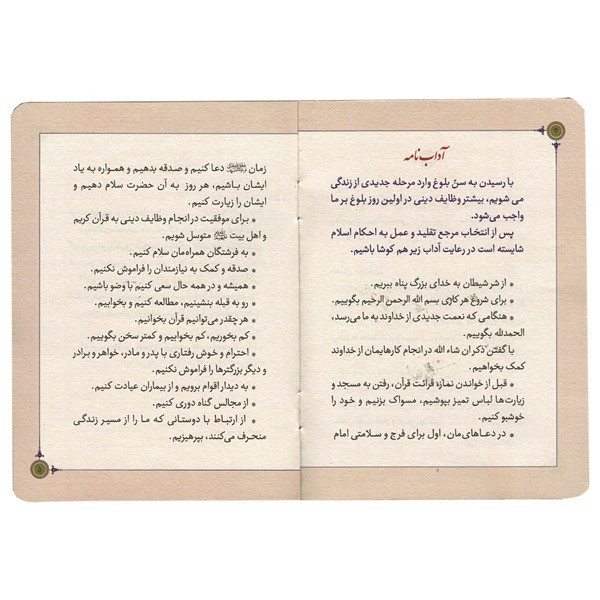 آداب‌نامه
با رسیدن به سنّ بلوغ وارد مرحله جدیدی از زندگی
می شویم، بیشتر وظایف دینی در اولین روز بلوغ بر ما
واجب می‌شود.
پس از انتخاب مرجع تقلید و عمل به احکام اسلام
شایسته است در رعایت آداب زیر هم کوشا باشیم.
* از شر شیطان به خدای بزرگ پناه ببریم.
* برای شروع هر کاری بسم الله الرحمن الرحیم بگوییم.
* هنگامی که نعمت جدیدی از خداوند به ما می‌رسد،
الحمدلله بگوییم.
با گفتن ذکر ان شاء الله در انجام کارهایمان از خداوند
کمک بخواهیم.
* قبل از خواندن نماز، قرائت قرآن، رفتن به مسجد و
زیارت‌ها لباس تمیز بپوشیم، مسواک بزنیم و خود را
خوشبو کنیم.
* در دعاهای‌مان، اول برای فرج و سلامتی امام
زمان دعا کنیم و صدقه بدهیم و همواره به یاد
ایشان باشیم، هر روز به آن حضرت سلام دهیم و
ایشان را زیارت کنیم.
* برای موفقیت در انجام وظایف دینی به قرآن کریم
و اهل بیت متوسل شویم.
* به فرشتگان همراه‌مان سلام کنیم.
* صدقه و کمک به نیازمندان را فراموش نکنیم.
* همیشه و در همه حال سعی کنیم با وضو باشیم.
* رو به قبله بنشینیم، مطالعه کنیم و بخوابیم.
* هر چقدر می‌توانیم قرآن بخوانیم.
* کم بخوریم، کم بخوابیم و کمتر سخن بگوییم.
* احترام و خوش رفتاری با پدر و مادر، خواهر و برادر
و دیگر بزرگترها را فراموش نکنیم.
* به دیدار اقوام برویم و از بیماران عیادت کنیم.
* از مجالس گناه دوری کنیم.
* از ارتباط با دوستانی که ما را از مسیر زندگی
منحرف می‌کنند، بپرهیزیم.